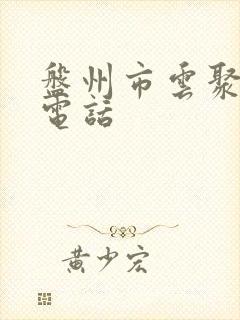 盤州市雲聚
電話
黄少宏